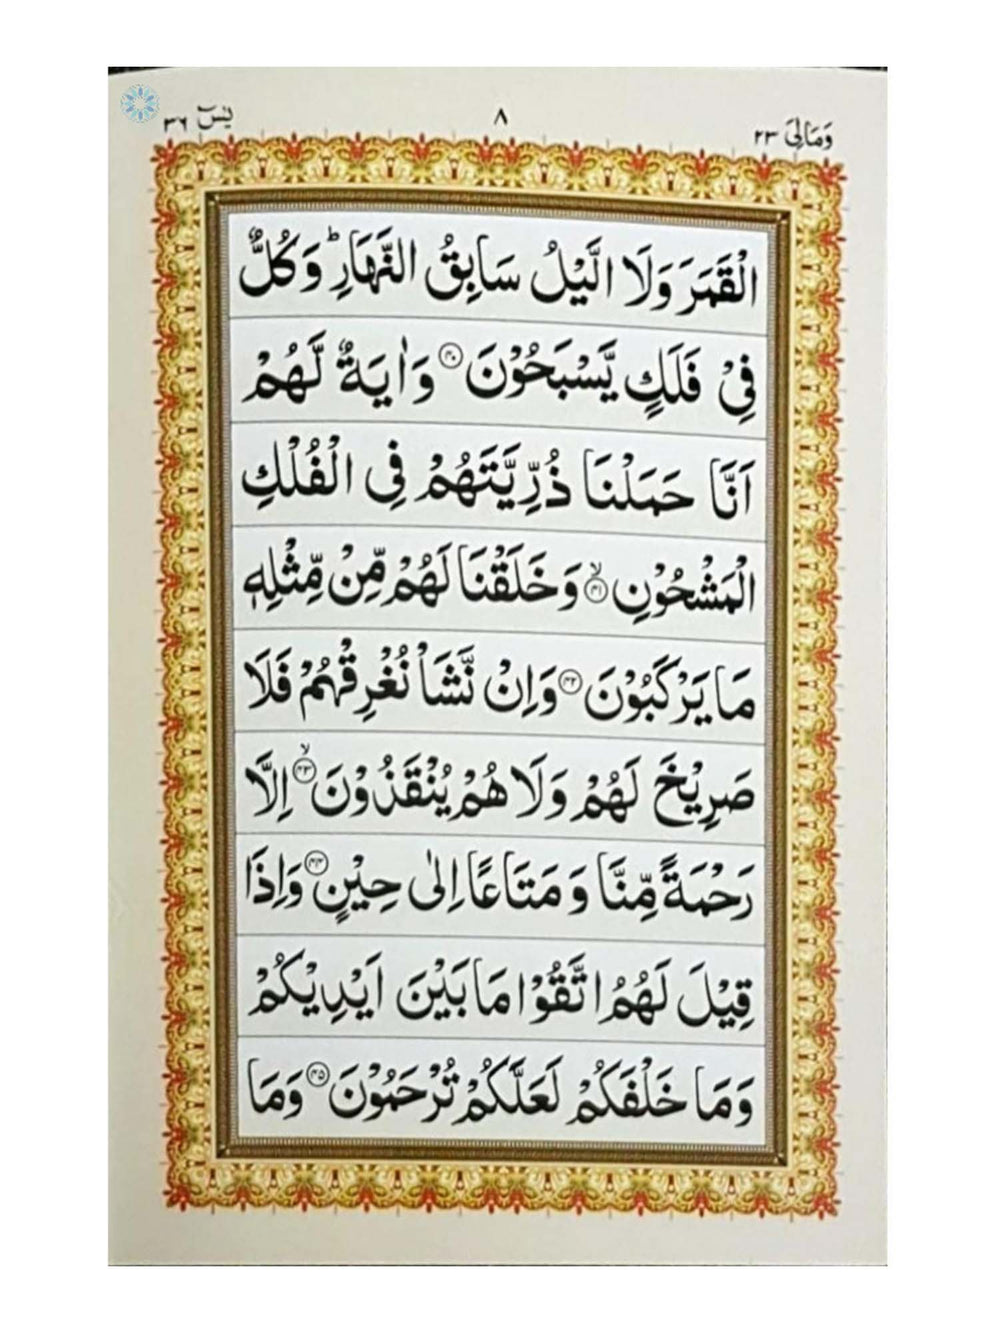 وَمَالِیَ ٢٣
٨
یٰسٓ ٣٦
الْقَمَرَ وَلَا الَّيْلُ سَابِقُ النَّهَارِ ؕ وَكُلٌّ
فِىْ فَلَكٍ يَّسْبَحُوْنَ ﴿۴۰﴾ وَاٰيَةٌ لَّهُمْ
اَنَّا حَمَلْنَا ذُرِّيَّتَهُمْ فِى الْفُلْكِ
الْمَشْحُوْنِ ۙ﴿۴۱﴾ وَخَلَقْنَا لَهُمْ مِّنْ مِّثْلِهٖ
مَا يَرْكَبُوْنَ ﴿۴۲﴾ وَاِنْ نَّشَاْ نُغْرِقْهُمْ فَلَا
صَرِيْخَ لَهُمْ وَلَا هُمْ يُنْقَذُوْنَ ۙ﴿۴۳﴾ اِلَّا
رَحْمَةً مِّنَّا وَمَتَاعًا اِلٰى حِيْنٍ ﴿۴۴﴾ وَاِذَا
قِيْلَ لَهُمُ اتَّقُوْا مَا بَيْنَ اَيْدِيْكُمْ
وَمَا خَلْفَكُمْ لَعَلَّكُمْ تُرْحَمُوْنَ ﴿۴۵﴾ وَمَا